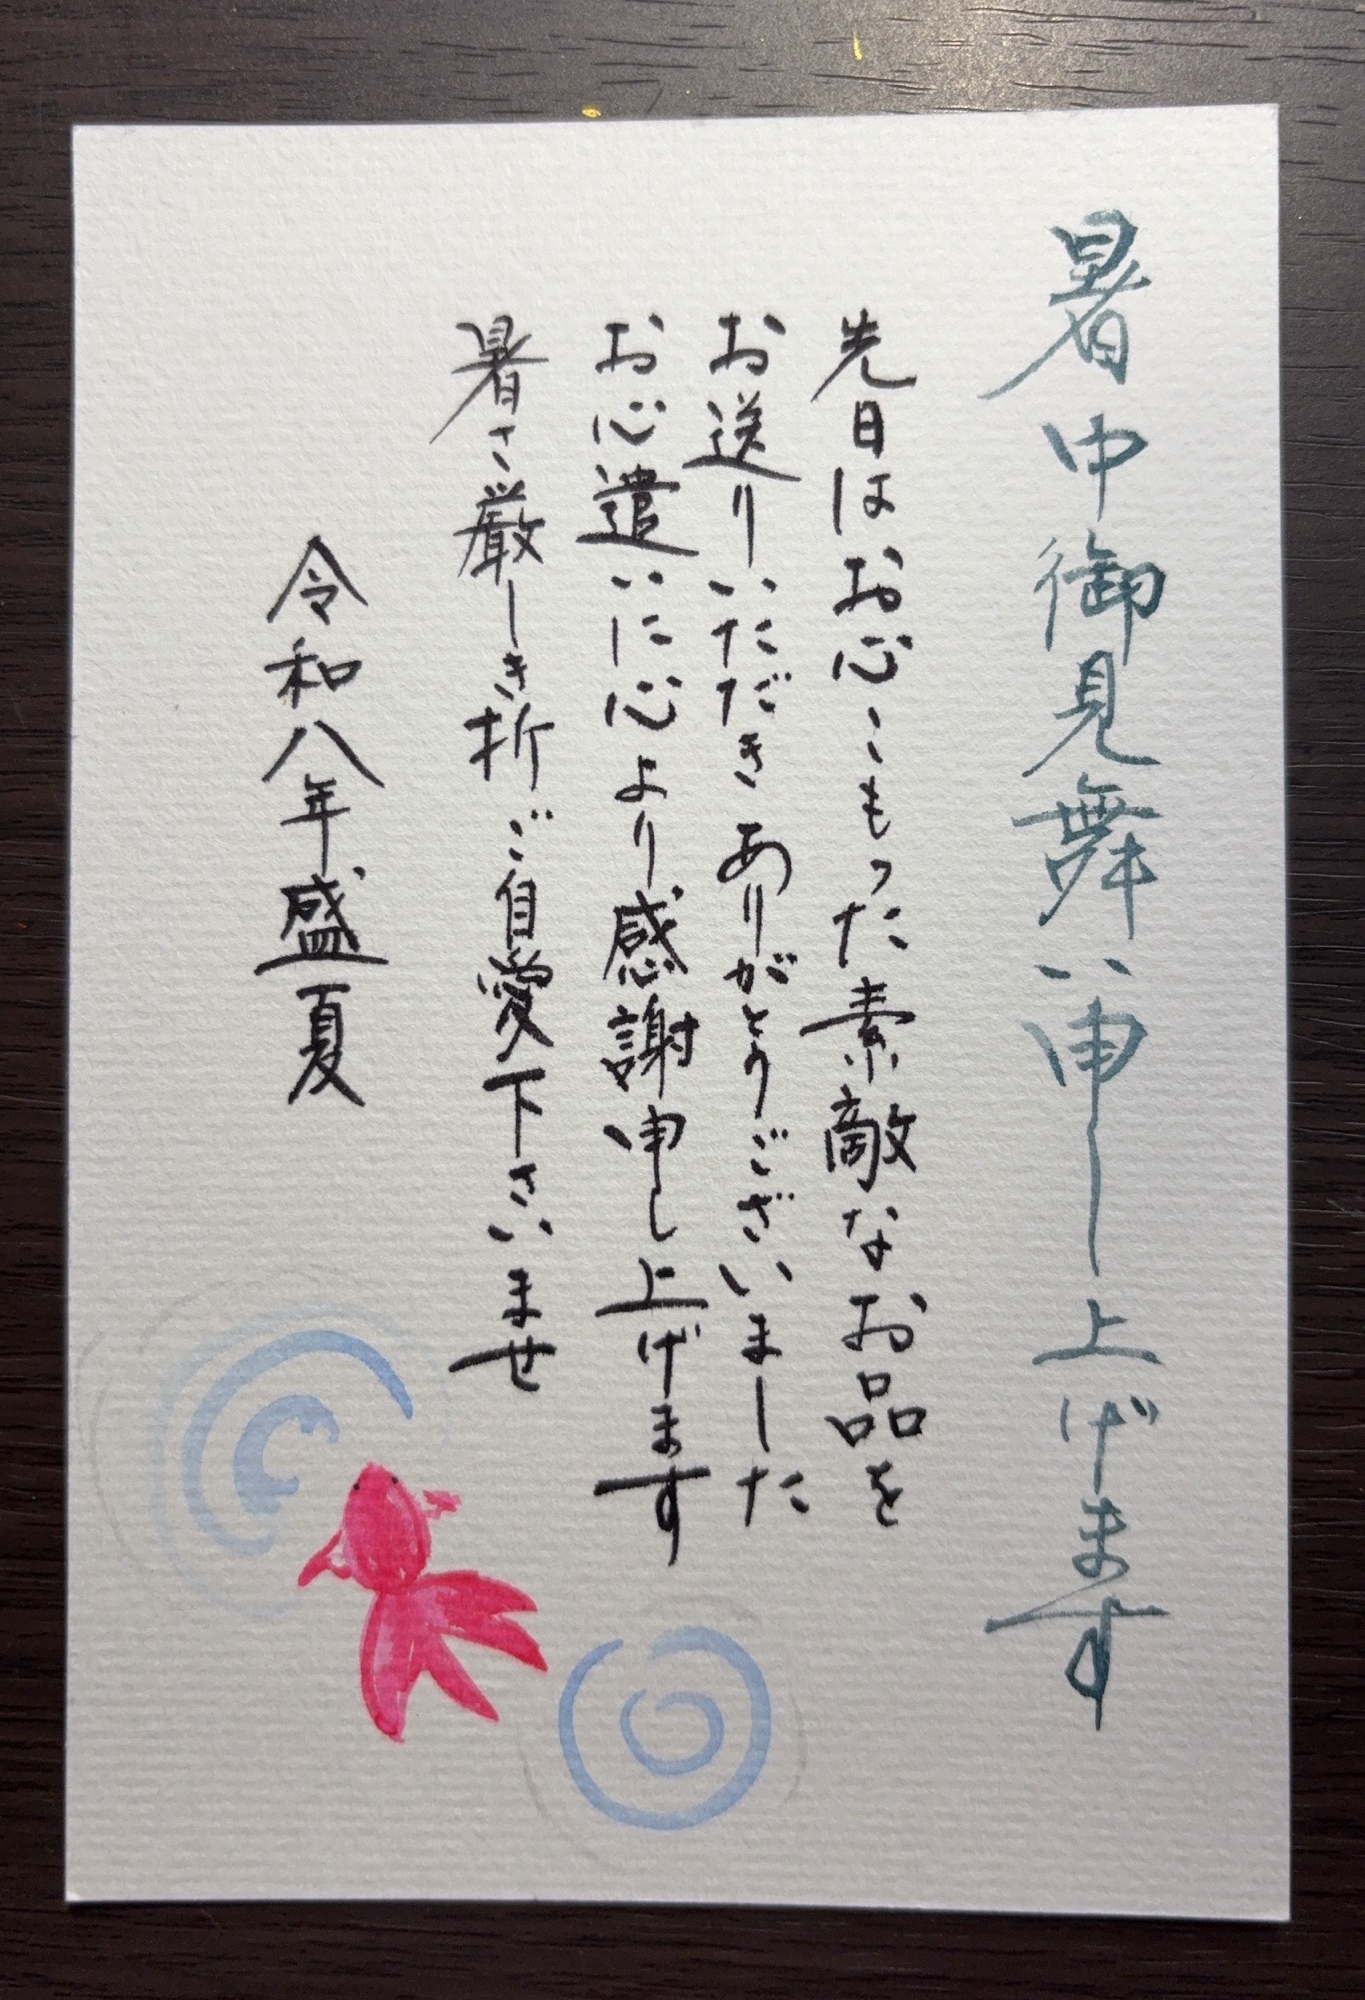 暑中御見舞い申し上げます
先日はお心こもった素敵なお品を
お送りいただきありがとうございました
お心遣いに心より感謝申し上げます
暑さ厳しき折ご自愛下さいませ
令和八年盛夏